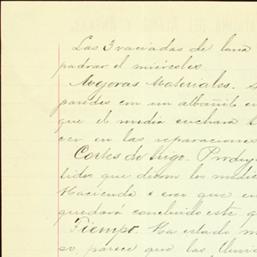 Las 3 vaciadas de lana
padrar el miércoles.
Mejoras Materiales.
paredes con un albañil en
que el media cuchara
cer en las reparaciones
Cortes de trigo. Produj
tidos que dieron los medie
Hacienda i creo que en
quedará concluido este q
Tiempo. Ha estado m
so, parece que las lluvi